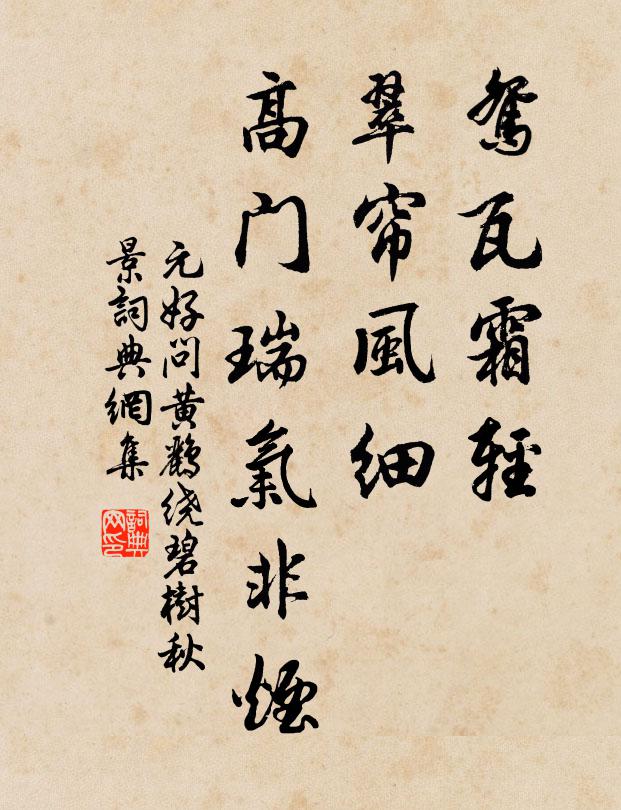 鸳瓦霜轻
翠帘風细
髙门瑞氣非煙
元好问黄鹤绕碧樹秋
景詞典網集
詞典网印